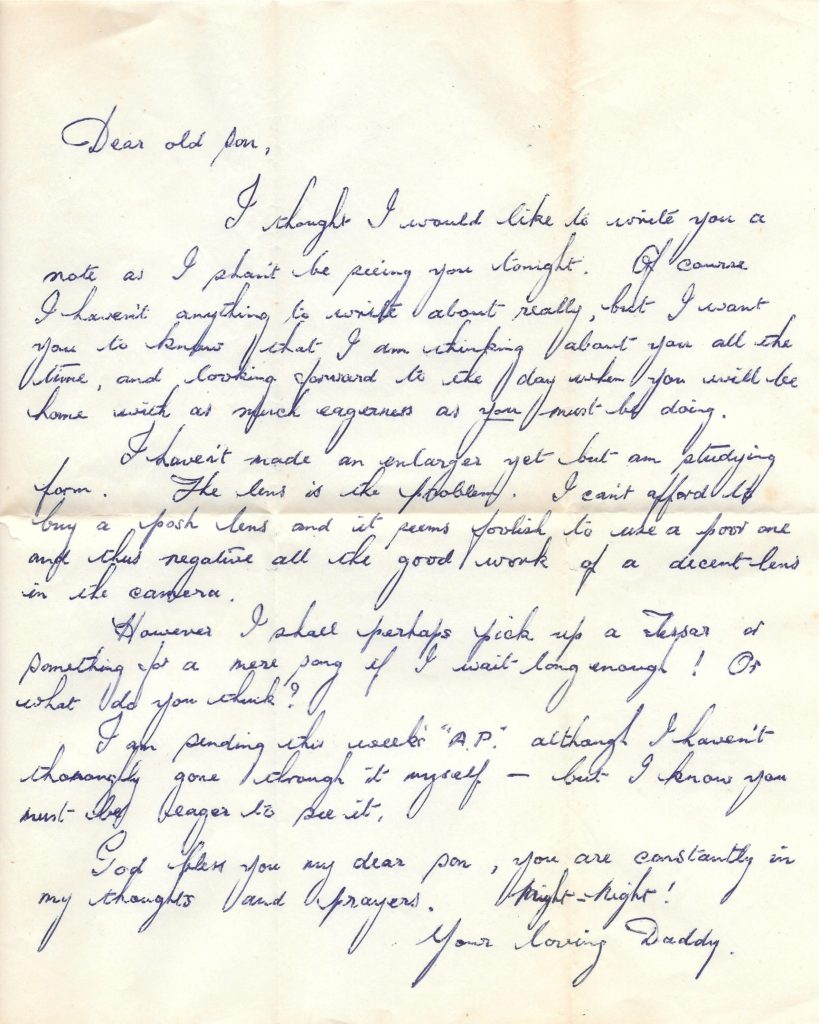 Dear old son,
I thought I would like to write you a
note as I shan't be seeing you tonight. Of course
I haven't anything to write about really, but I want
you to know that I am thinking about you all the
time, and looking forward to the day when you will be
home with as much eagerness as you must be doing.
I haven't made an enlarger yet but am studying
form. The lens is the problem. I can't afford to
buy a posh lens and it seems foolish to use a poor one
and thus negative all the good work of a decent lens
in the camera.
However I shall perhaps pick up a Tessar or
something for a mere song if I wait long enough! Or
what do you think?
I am sending this week's "A.P." although I haven't
thoroughly gone through it myself – but I know you
must be eager to see it.
God bless you my dear son, you are constantly in
my thoughts and prayers. Night-Night!
Your loving Daddy.